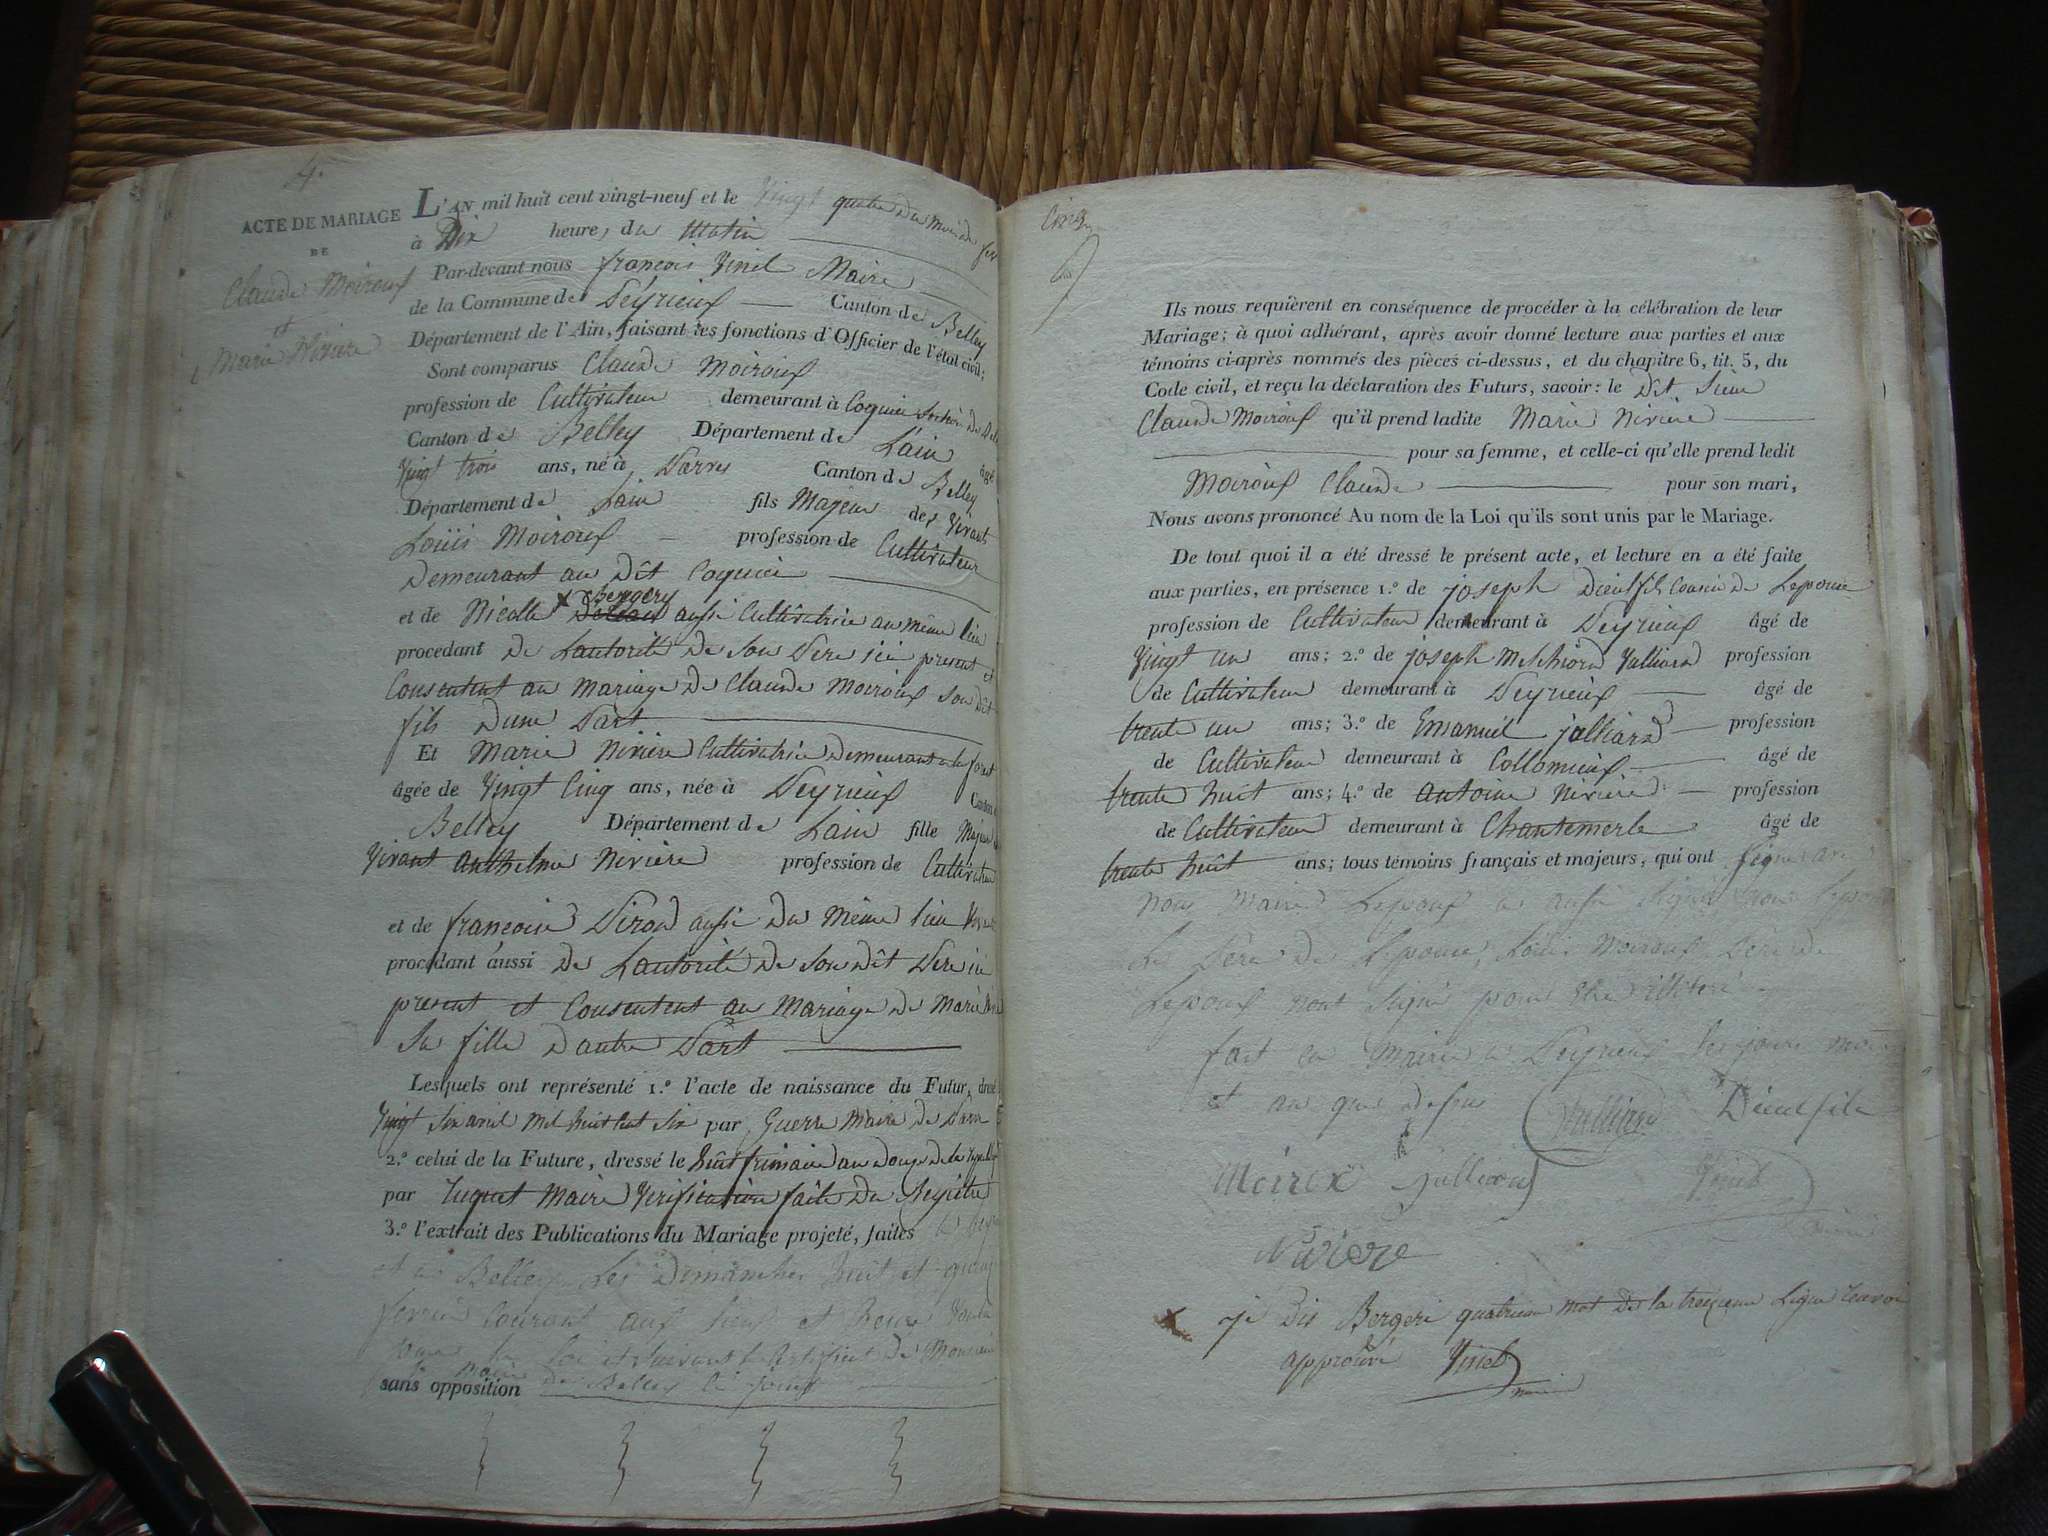 4.
ACTE DE MARIAGE
DE
Claude Moiroux
et
Marie Nivière
L'AN mil huit cent vingt-neuf et le Vingt quatre du mois de fev
à Dix heure, du Matin
Par-devant nous françois Vinel Maire
de la Commune de Peyrieux Canton de Belley
Département de l'Ain, faisant les fonctions d'Officier de l'état civil;
Sont comparus Claude Moiroux
profession de Cultivateur demeurant à Coquieu
Canton de Belley Département de Lain âgé
Vingt trois ans, né à Parves Canton de Belley
Département de Lain fils Majeur des Vivants
Loüis Moiroux profession de Cultivateur
Demeurant au Dît Coquieu
bergery
et de Nicolle aussi Cultivatrice au même lieu
procedant De Lautorité De Son Pere ici present et
Consentent au Mariage De Claude Moiroux Son dit
fils Dune Part
Et Marie Nivière Cultivatrice Demeurant a la foret
âgée de Vingt Cinq ans, née à Peyrieux Canton
Belley Département de Lain fille Majeur
Vivant Anthelme Nivière profession de Cultivateur
et de françoise Pirod aussi Du même lieu
procedant aussi De Lautorité De Son Dît Pere ici
present et Consentent au Mariage De Marie
Sa fille Dautre Part
Lesquels ont représenté 1.º l'acte de naissance du Futur, dressé
Vingt Six avril Mil huit Cent Six par Guerre Maire De Parv
2.º celui de la Future, dressé le huit frimaire an Douze De la
par Tuquet Maire Verification faite Du Registre
3.º l'extrait des Publications du Mariage projeté, faites
et a Belley Les Dimanches huit et quinze
fevrier Courant aux lieux et heure
la loi et Suivant le Certificat De Monsieur
le maire
sans opposition de Belley ci joint
Cinq
Ils nous requièrent en conséquence de procéder à la célébration de leur
Mariage; à quoi adhérant, après avoir donné lecture aux parties et aux
témoins ci-après nommés des pièces ci-dessus, et du chapitre 6, tit. 5, du
Code civil, et reçu la déclaration des Futurs, savoir: le Dit Sieur
Claude Moiroux qu'il prend ladite Marie Nivière
pour sa femme, et celle-ci qu'elle prend ledit
Moiroux Claude pour son mari,
Nous avons prononcé Au nom de la Loi qu'ils sont unis par le Mariage.
De tout quoi il a été dressé le présent acte, et lecture en a été faite
aux parties, en présence 1.º de joseph Dieulfils Cousin De Lepouse
profession de Cultivateur demeurant à Peyrieux âgé de
Vingt un ans; 2.º de joseph Melchiord Julliard profession
de Cultivateur demeurant à Peyrieux âgé de
trente un ans; 3.º de Emanuel julliard profession
de Cultivateur demeurant à Collomieux âgé de
trente huit ans; 4.º de antoine Nivière profession
de Cultivateur demeurant à Chantemerle âgé de
trente huit ans; tous témoins français et majeurs, qui ont Signé avec
Nous Maire Lepoux a aussi Signé Non Lepouse
Le Père De Lepouse, Loüis Moiroux Père De
Lepoux nont Signé pour être illitéré
fait en Mairie a Peyrieux les jour mois
et an que dessus Julliard Dieulfils
Moirox Julliard Vinel
maire
Nivière
x je Dis Bergeri quatrieme Mot De la treizieme Ligne renvoi
approuvé Vinel
maire